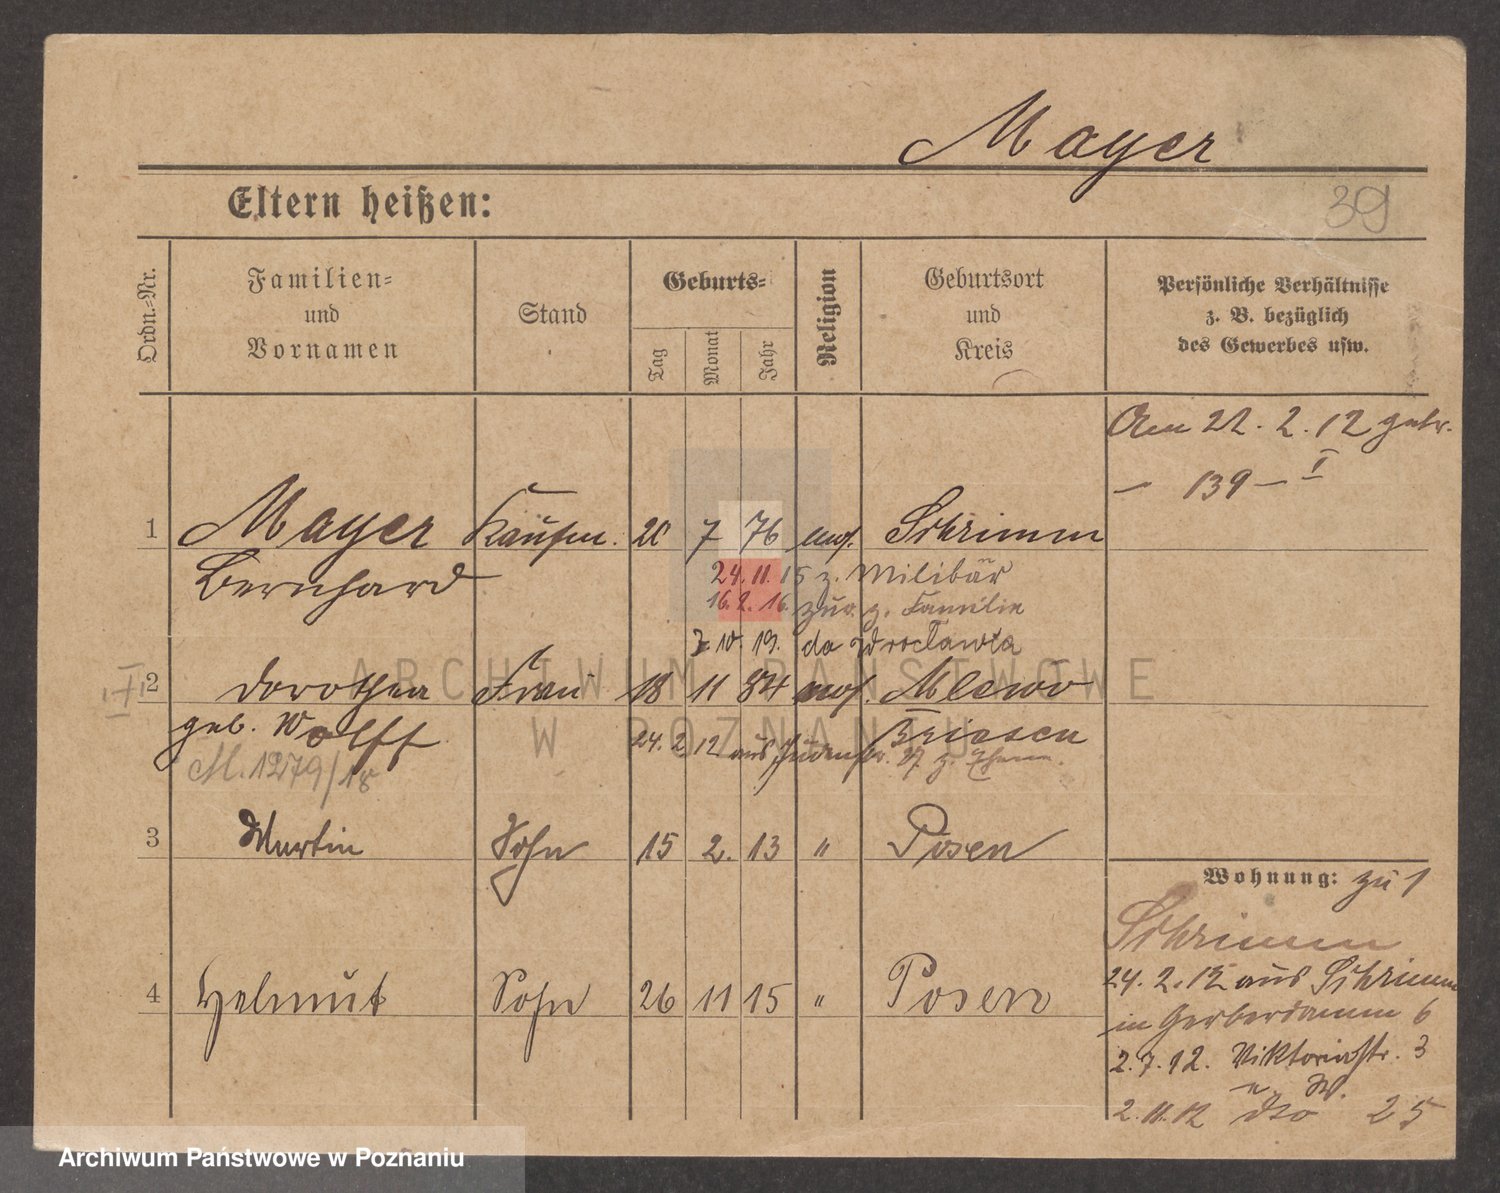 Mayer
Eltern heißen:
39
Ordn.-Nr.
Familien-
und
Vornamen
Stand
Geburts-
Tag
Monat
Jahr
Religion
Geburtsort
und
Kreis
Persönliche Verhältnisse
z. B. bezüglich
des Gewerbes usw.
Am 22. 2. 12 getr.
– 139 – I
1 Mayer Kaufm. 20 7 76 mos. Schrimm
Bernhard
24. 11. 15 z. Militär
16. 2. 16. zur. z. Familie
7 10. 19. do Wrocławia
2 Dorothea Frau 18 11 84 mos. Mlewo
geb. Wolff
Briesen
24. 2 12 aus Judenstr. z. Thorn.
M. 1279/18
3 Martin Sohn 15 2. 13 " Posen
4 Helmut Sohn 26 11 15 " Posen
Wohnung: zu 1
Schrimm
24. 2. 12 aus Schrimm
in Gerberdamm 6
2. 7. 12. Viktoriastr. 3
2. 11. 12 dto 25
ARCHIWUM PAŃSTWOWE
W POZNANIU
Archiwum Państwowe w Poznaniu